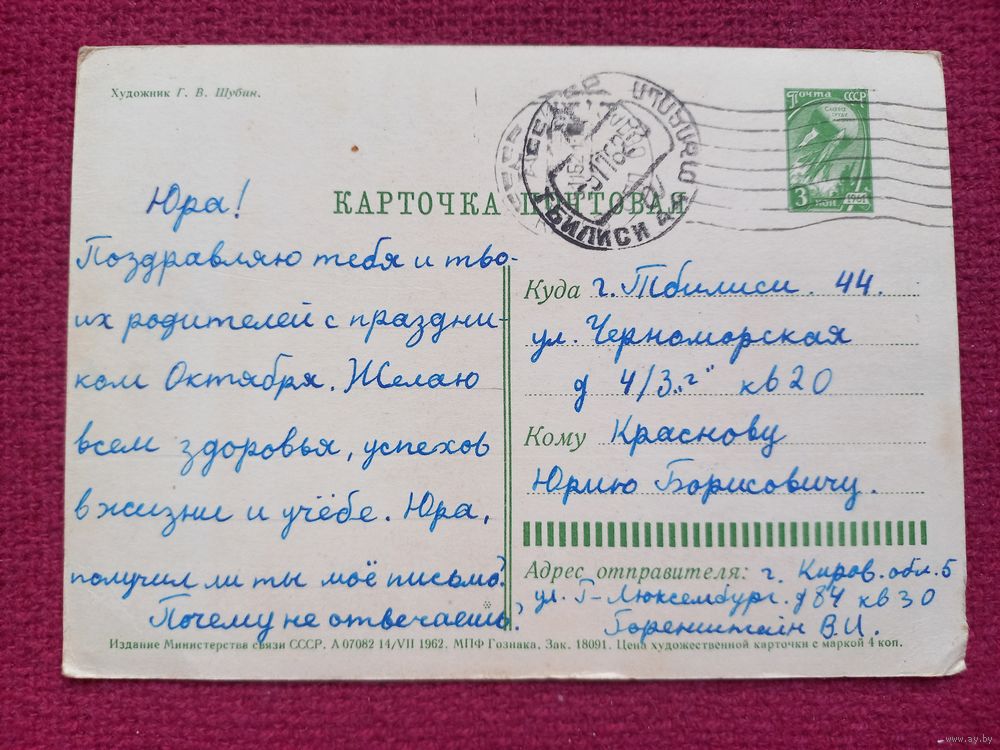 Художник Г. В. Шубин.
Почта СССР
Слава
труду
3 коп
1961
ТБИЛИСИ
КАРТОЧКА ПОЧТОВАЯ
Юра!
Поздравляю тебя и тво-
их родителей с праздни-
ком Октября. Желаю
всем здоровья, успехов
в жизни и учёбе. Юра,
получил ли ты моё письмо?
Почему не отвечаешь?
Куда г. Тбилиси. 44.
ул. Черноморская
д 4/3 „г" кв 20
Кому Краснову
Юрию Борисовичу.
Адрес отправителя: г. Киров. обл. 5
ул. Г-Люксембург. д 84 кв 30
Горенштейн В.И.
Издание Министерства связи СССР. А 07082 14/VII 1962. МПФ Гознака. Зак. 18091. Цена художественной карточки с маркой 4 коп.
www.ay.by